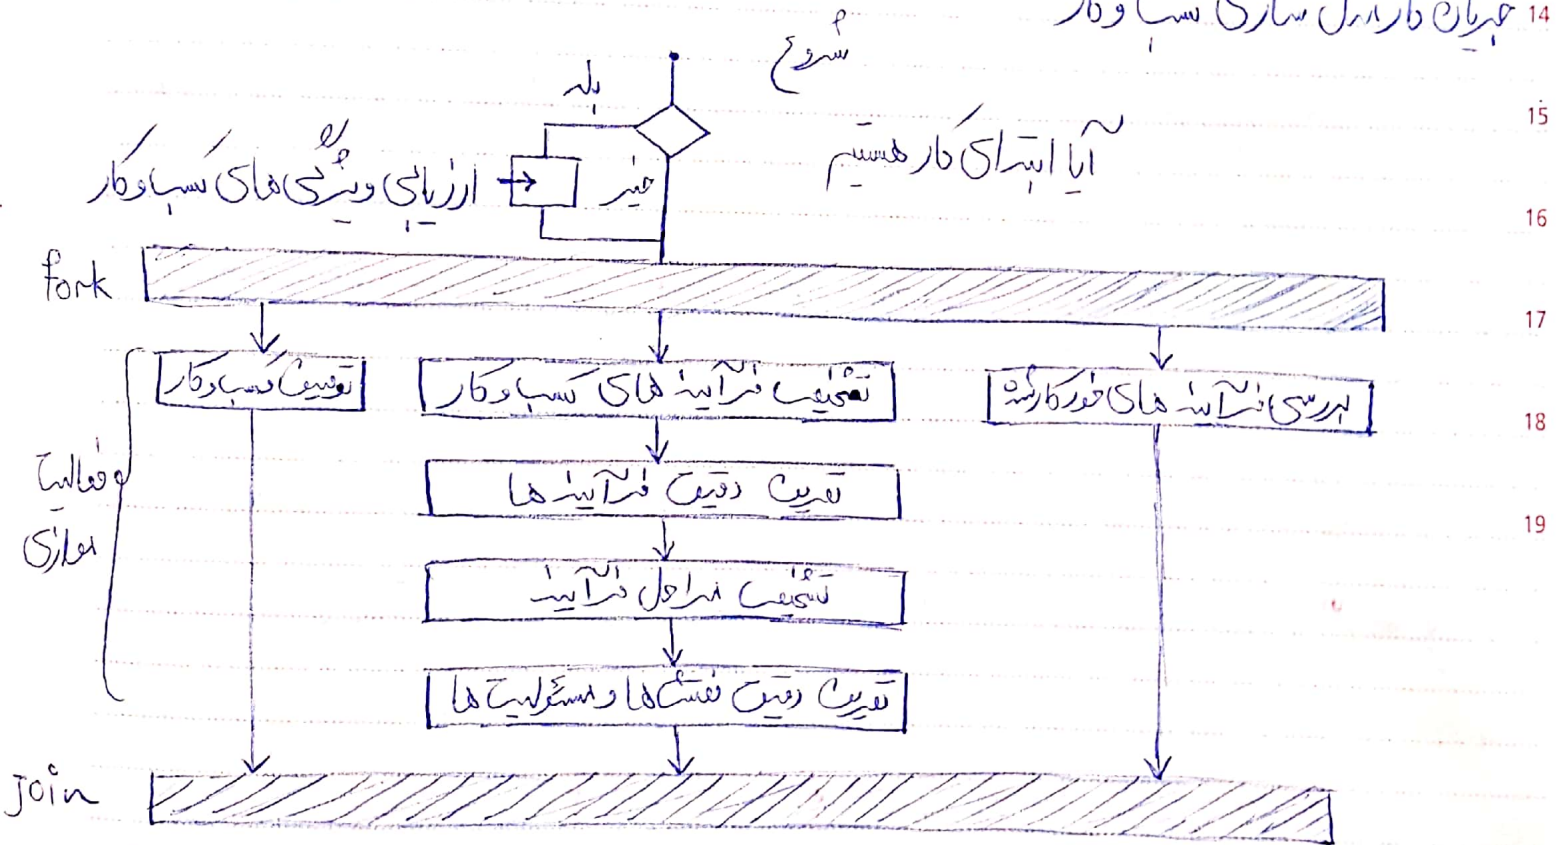 جریان کار مدل سازی کسب و کار
14
شروع
بله
15
آیا ابتدای کار هستیم
خیر
ارزیابی ویژگی های کسب و کار
16
fork
17
توصیف کسب و کار
تشخیص فرآیند های کسب و کار
بررسی فرآیند های خودکار شده
18
فعالیت
موازی
تعریف دقیق فرآیند ها
19
تشخیص مراحل فرآیند
تعریف دقیق نقش ها و مسئولیت ها
join